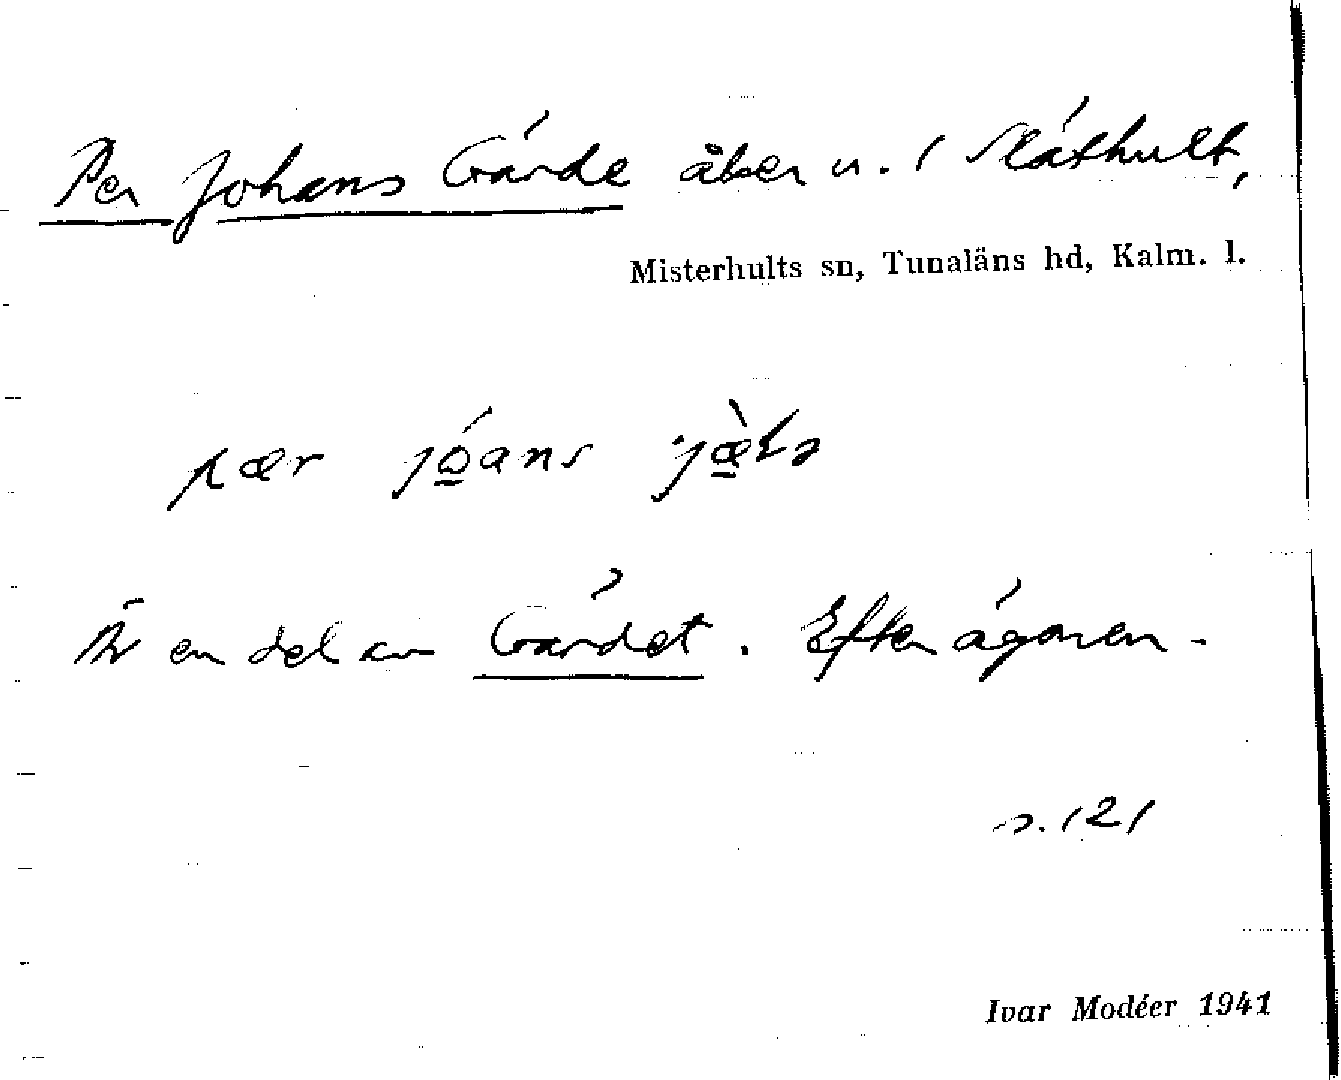 Per Johans Gärde åker n. 1 Släthult,
Misterhults sn, Tunaläns hd, Kalm. l.
pær jóans
Är en del av Gärdet. Efter ägaren.
s. 121
Ivar Modéer 1941